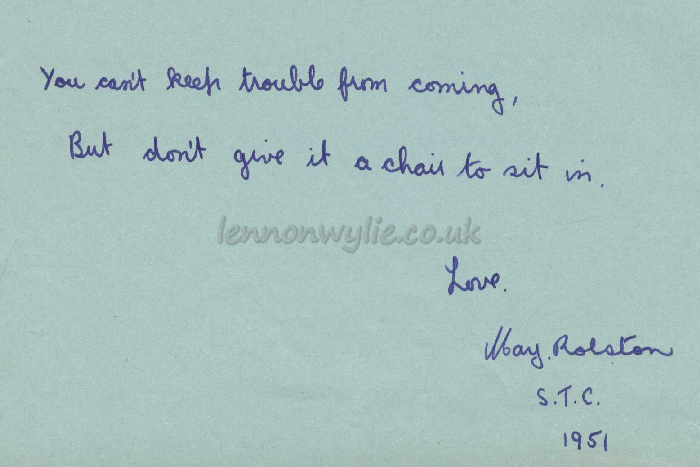 You can't keep trouble from coming,
But don't give it a chair to sit in.
lennonwylie.co.uk
Love.
May. Rolston
S.T.C.
1951